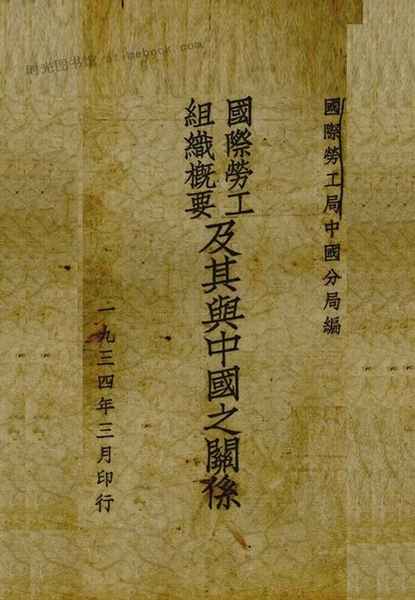 时光图书馆 atimebook.com
國際勞工局中國分局編
國際勞工
組織概要
及其與中國之關係
一九三四年三月印行